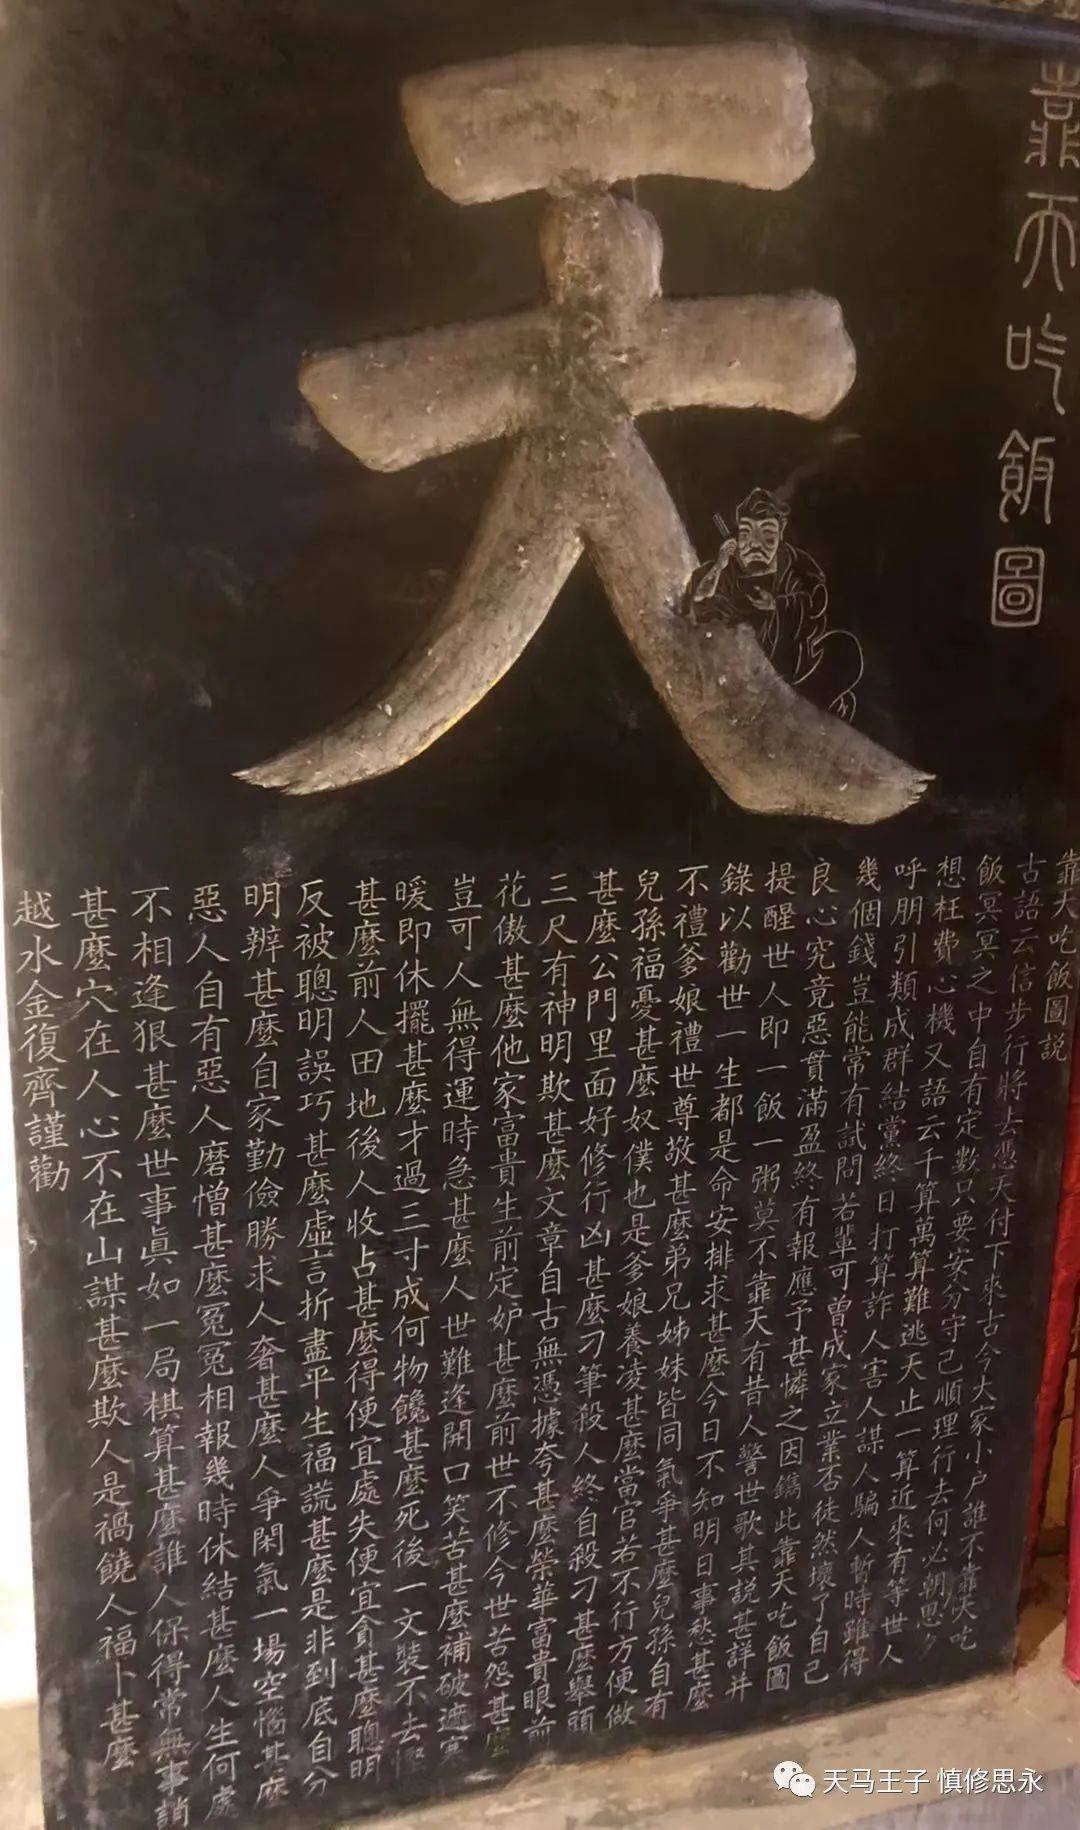 靠天吃飯圖
天
靠天吃飯圖説
古語云信步行將去憑天付下來古今大家小户誰不靠天吃
飯冥冥之中自有定數只要安分守己順理行去何必朝思夕
想枉費心機又語云千算萬算難逃天止一算近來有等世人
呼朋引類成群結黨終日打算詐人害人謀人騙人暫時雖得
幾個錢豈能常有試問若輩可曾成家立業否徒然壞了自己
良心究竟惡貫滿盈終有報應予甚憐之因鐫此靠天吃飯圖
提醒世人即一飯一粥莫不靠天有昔人警世歌其説甚詳并
錄以勸世一生都是命安排求甚麼今日不知明日事愁甚麼
不禮爹娘禮世尊敬甚麼弟兄姊妹皆同氣爭甚麼兒孫自有
兒孫福憂甚麼奴僕也是爹娘養凌甚麼當官若不行方便做
甚麼公門里面好修行凶甚麼刁筆殺人終自殺刁甚麼舉頭
三尺有神明欺甚麼文章自古無憑據夸甚麼榮華富貴眼前
花傲甚麼他家富貴生前定妒甚麼前世不修今世苦怨甚麼
豈可人無得運時急甚麼人世難逢開口笑苦甚麼補破遮寒
暖即休擺甚麼才過三寸成何物饞甚麼死後一文裝不去慳
甚麼前人田地後人收占甚麼得便宜處失便宜貪甚麼聰明
反被聰明誤巧甚麼虛言折盡平生福謊甚麼是非到底自分
明辨甚麼自家勤儉勝求人奢甚麼人爭閑氣一場空惱甚麼
惡人自有惡人磨憎甚麼冤冤相報幾時休結甚麼人生何處
不相逢狠甚麼世事真如一局棋算甚麼誰人保得常無事誚
甚麼穴在人心不在山謀甚麼欺人是禍饒人福卜甚麼
越水金復齊謹勸
天马王子 慎修思永